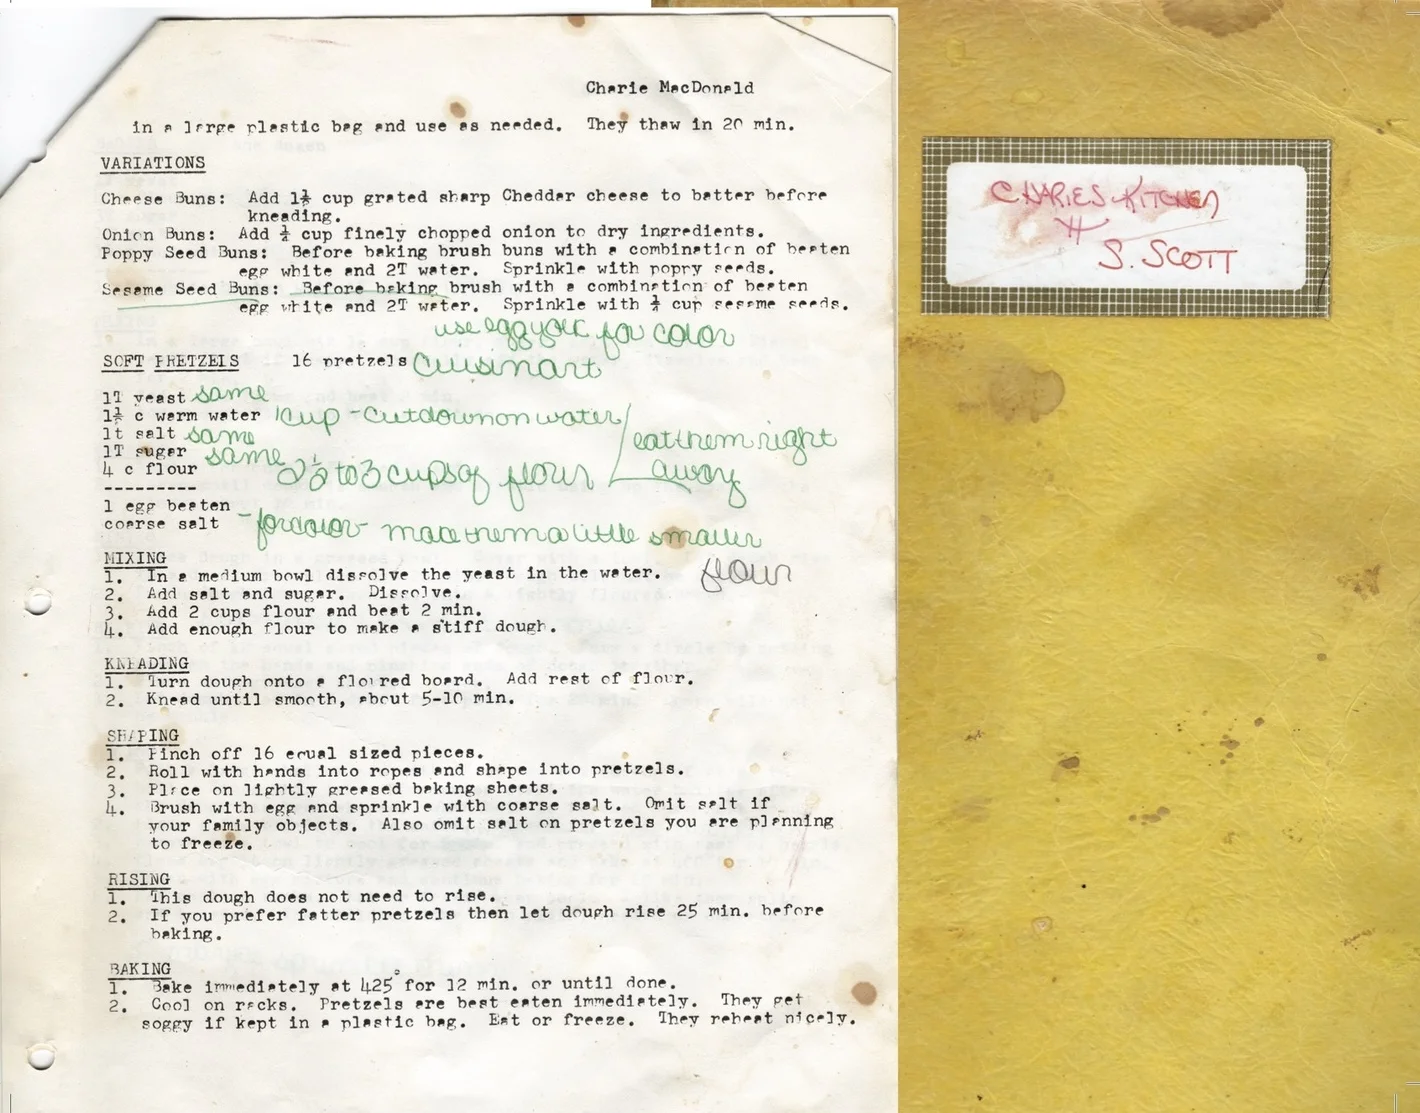 Charie MacDonald
in a large plastic bag and use as needed. They thaw in 20 min.
VARIATIONS
Cheese Buns: Add 1½ cup grated sharp Cheddar cheese to batter before
kneading.
Onion Buns: Add ½ cup finely chopped onion to dry ingredients.
Poppy Seed Buns: Before baking brush buns with a combination of beaten
egg white and 2T water. Sprinkle with poppy seeds.
Sesame Seed Buns: Before baking brush with a combination of beaten
egg white and 2T water. Sprinkle with ½ cup sesame seeds.
use egg yolk for color
SOFT PRETZELS 16 pretzels Cuisinart
1T yeast same
1½ c warm water 1 cup - cut down on water
1t salt same
eat them right
1T sugar same
4 c flour 2½ to 3 cups of flour
away
---------
1 egg beaten
coarse salt - for color - make them a little smaller
MIXING
flour
1. In a medium bowl dissolve the yeast in the water.
2. Add salt and sugar. Dissolve.
3. Add 2 cups flour and beat 2 min.
4. Add enough flour to make a stiff dough.
KNEADING
1. Turn dough onto a floured board. Add rest of flour.
2. Knead until smooth, about 5-10 min.
SHAPING
1. Pinch off 16 equal sized pieces.
2. Roll with hands into ropes and shape into pretzels.
3. Place on lightly greased baking sheets.
4. Brush with egg and sprinkle with coarse salt. Omit salt if
your family objects. Also omit salt on pretzels you are planning
to freeze.
RISING
1. This dough does not need to rise.
2. If you prefer fatter pretzels then let dough rise 25 min. before
baking.
BAKING
1. Bake immediately at 425° for 12 min. or until done.
2. Cool on racks. Pretzels are best eaten immediately. They get
soggy if kept in a plastic bag. Eat or freeze. They reheat nicely.
CHARIES KITCHEN
S. SCOTT